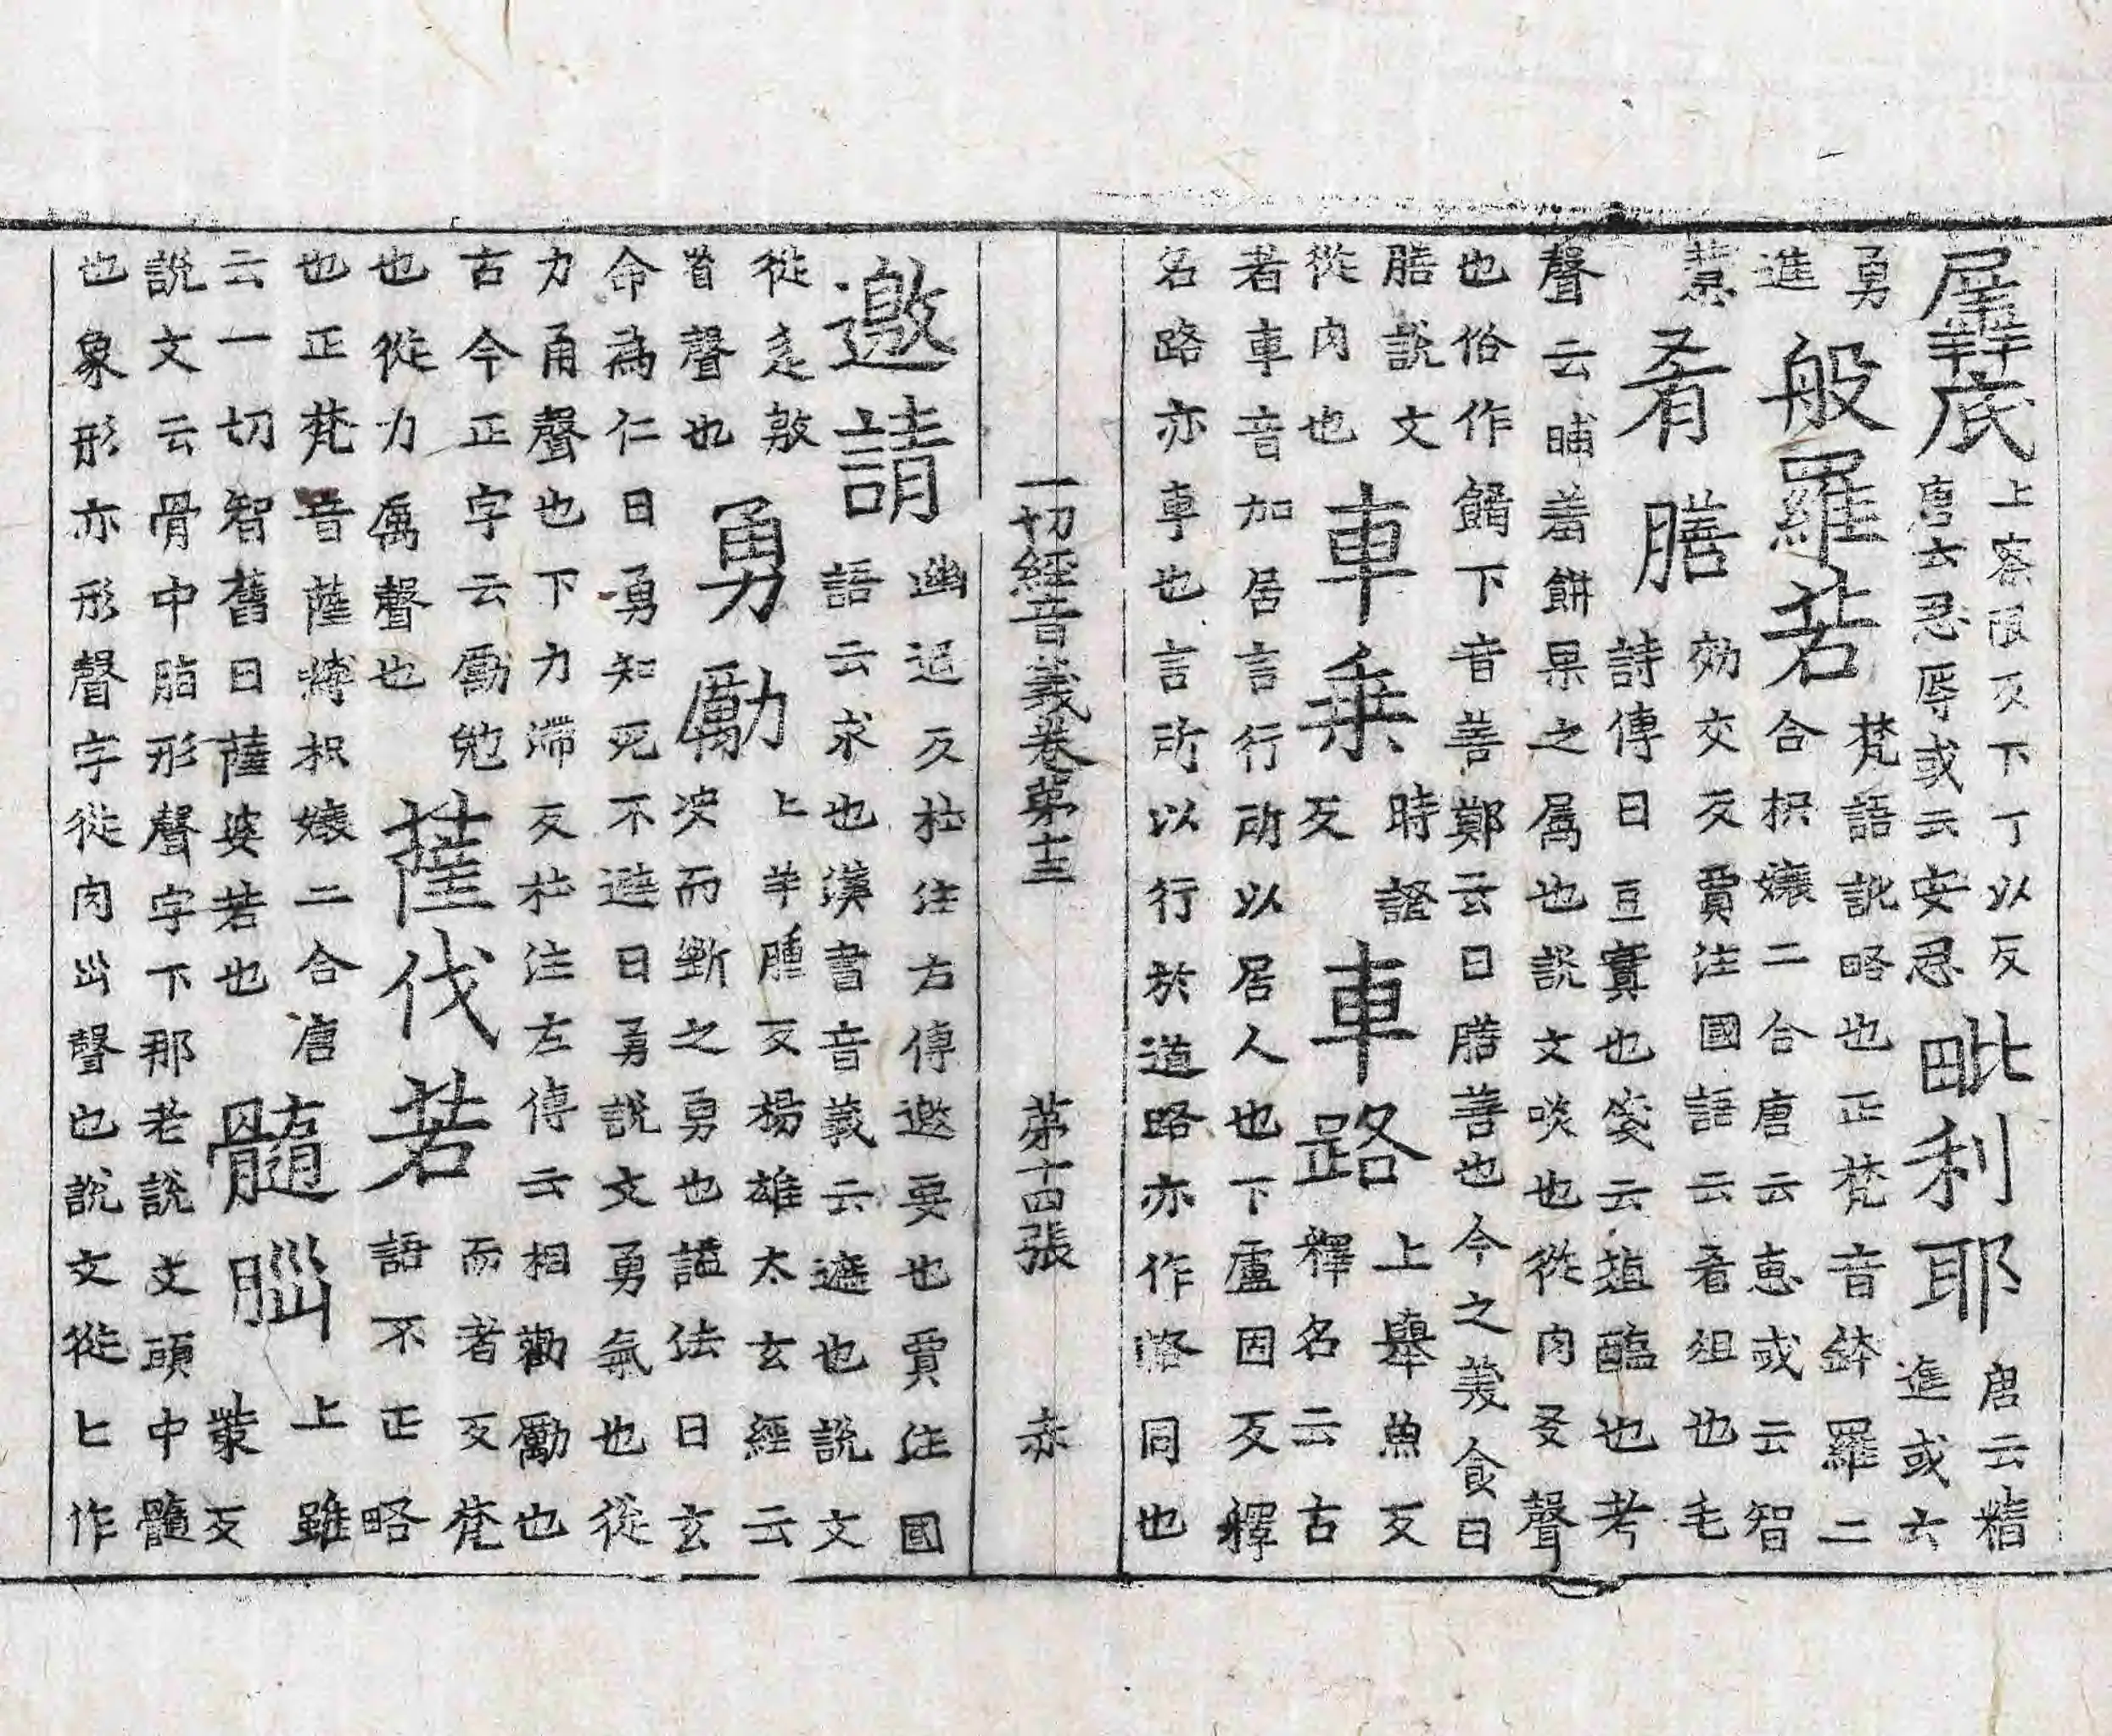 羼底
上察限反下丁以反
唐云忍辱或云安忍
毗利耶
唐云精
進或云
勇
進
般羅若
梵語訛略也正梵音鉢羅二
合枳孃二合唐云恵或云智
慧
肴膳
効交反賈注國語云肴俎也毛
詩傳曰豆實也箋云葅醢也考
聲云晡羞餅果之属也說文啖也從肉爻聲
也俗作餚下音善鄭云曰膳善也今之羙食曰
膳說文
從肉也
車乗
時證
反
車路
上舉魚反
釋名云古
者車音加居言行所以居人也下盧固反釋
名路亦車也言所以行於道路亦作輅同也
一切經音義卷第十三　第十四張　赤
邀請
幽遥反杜注左傳邀要也賈注國
語云求也漢書音義云遮也說文
從辵敫
省聲也
勇勵
上羊腫反楊雄太玄經云
决而斷之勇也謚法曰玄
命為仁曰勇知死不避曰勇說文勇氣也從
力甬聲也下力滯反杜注左傳云相勸勵也
古今正字云勵勉
也從力厲聲也
薩伐若
而者反梵
語不正略
也正梵音薩嚩枳孃二合唐
云一切智舊曰薩婆若也
髓腦
上雖
蘂反
說文云骨中脂形聲字下那老說文頭中髓
也象形亦形聲字從肉𡿺聲也說文從匕作